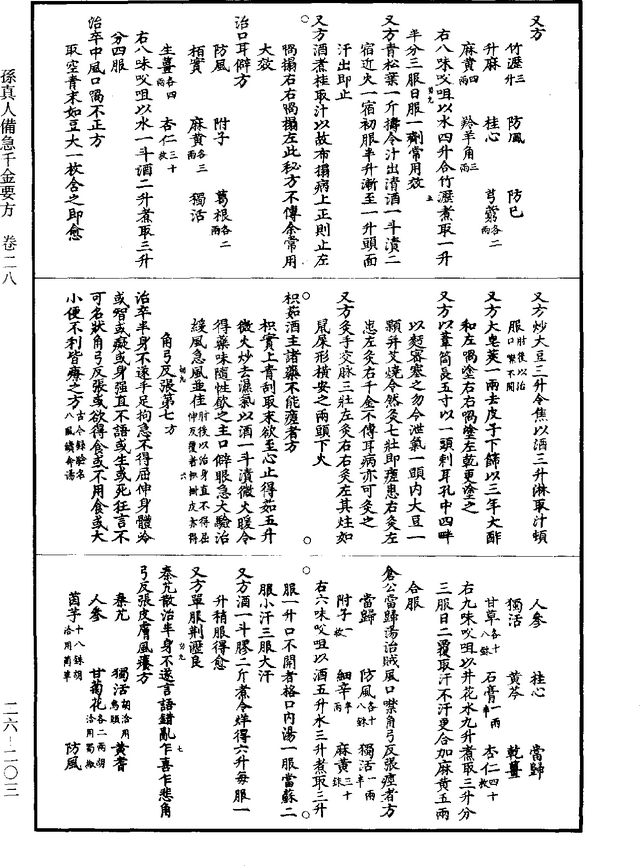 孫真人備急千金要方　卷二八
二六－二〇三
又方
竹瀝三升　防風　防巳
升麻　桂心　芎藭各二兩
麻黃四兩　羚羊角三兩
右八味㕮咀以水四升合竹瀝煮取一升
半分三服日服一劑常用效
又方青松葉一斤擣令汁出清酒一斗漬二
宿近火一宿初服半升漸至一升頭面
汗出即止
又方酒煮桂取汁以故布搨病上正則止左
喎搨右右喎搨左此秘方不傳余常用
大效
治口耳僻方
防風　附子　葛根各二兩
柏實　麻黃各三兩　獨活
生薑各四兩　杏仁三十枚
右八味㕮咀以水一斗酒二升煮取三升
分四服
治卒中風口喎不正方
取空青末如豆大一枚含之即愈
又方炒大豆三升令焦以酒三升淋取汁頓
服肘後以治口噤不開
又方大皂莢一兩去皮子下篩以三年大酢
和左喎塗右右喎塗左乾更塗之
又方以葦筒長五寸以一頭刺耳孔中四畔
以麪密塞之勿令泄氣一頭內大豆一
顆并艾燒令然灸七壯即瘥患右灸左
患左灸右千金不傳耳病亦可灸之
又方灸手交脉三壯左灸右右灸左其炷如
鼠屎形橫安之兩頭下火
枳茹酒主諸藥不能瘥者方
枳實上青刮取末欲至心止得茹五升
微火炒去濕氣以酒一斗漬微火暖令
得藥味隨性飲之主口僻眼急大驗治
緩風急風並佳肘後以治身直不得屈伸反覆者枳樹皮亦得
角弓反張第七方
治卒半身不遂手足拘急不得屈伸身體冷
或智或癡或身强直不語或生或死狂言不
可名狀角弓反張或欲得食或不用食或大
小便不利皆療之方古今錄驗名八風續命湯
人參　桂心　當歸
獨活　黃芩　乾薑
甘草各十八銖　石膏一兩半　杏仁四十枚
右九味㕮咀以井花水九升煮取三升分
三服日二覆取汗不汗更合加麻黃五兩
合服
倉公當歸湯治賊風口噤角弓反張痙者方
當歸　防風各十八銖　獨活一兩半
附子一枚　細辛半兩　麻黃三十銖
右六味㕮咀以酒五升水三升煮取三升
服一升口不開者格口內湯一服當蘇二
服小汗三服大汗
又方酒一斗膠二斤煮令烊得六升每服一
升稍服得愈
又方單服荆瀝良
秦艽散治半身不遂言語錯亂乍喜乍悲角
弓反張皮膚風癢方
秦艽　獨活胡洽用烏頭　黃耆
人參　甘菊花各二兩胡洽用蜀椒
茵芋十八銖胡洽用菌草　防風